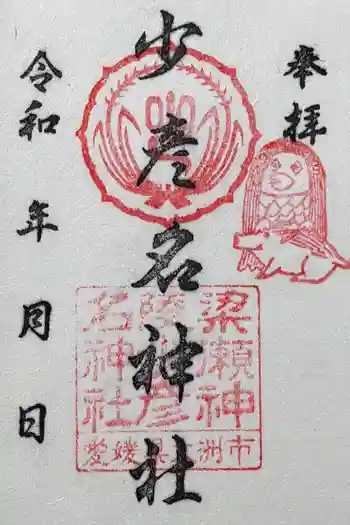 奉拝
少彦名神社
令和 年 月 日
梁瀬神
名神社
愛媛県大洲市